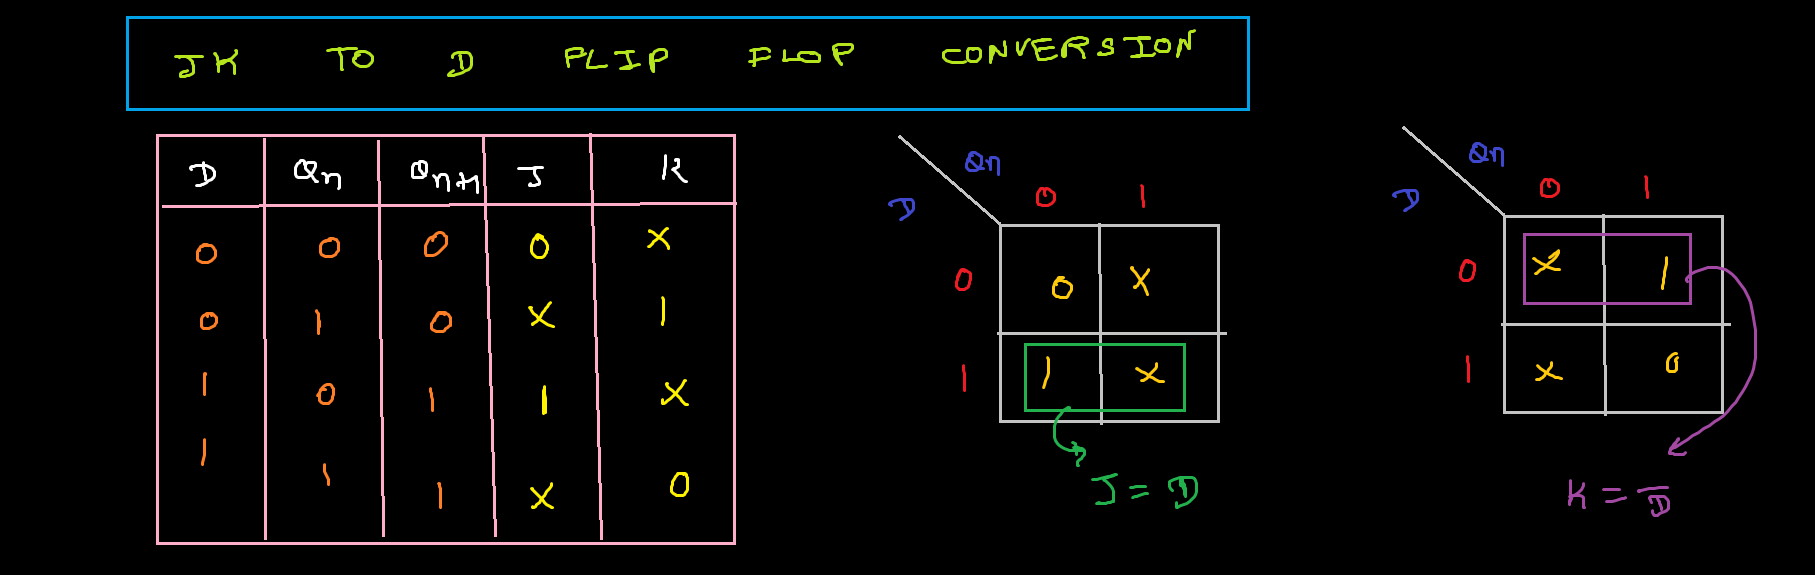 JK TO D FLIP FLOP CONVERSION
D Qn Qn+1 J K
0 0 0 0 X
0 1 0 X 1
1 0 1 1 X
1 1 1 X 0
Qn
D 0 1
0 0 X
1 1 X
J = D
Qn
D 0 1
0 X 1
1 X 0
K = D̅